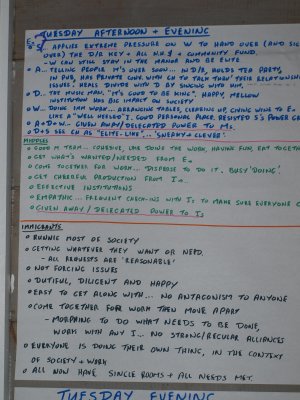 TUESDAY AFTERNOON + EVENING
E's
S... APPLIES EXTREME PRESSURE ON W TO HAND OVER (AND SIGN
OVER) THE D/R KEY + ALL N.H.$ + COMMUNITY FUND.
- W CAN STILL STAY IN THE MANOR AND BE ELITE
○ A... TELLING PEOPLE IT'S OVER SOON... IN D/R, HOLDS TEA PARTY,
IN PUB, HAS PRIVATE CONV. WITH CH TO TALK THEIR RELATIONSHIP
ISSUES. HEALS DIVIDE WITH D BY SINGING WITH HIM.
○ D... THE MUSIC MAN, "IT'S GOOD TO BE KING". HAPPY MELLOW
INSTITUTION HAS BIG IMPACT ON SOCIETY
○ W... DOING IMM WORK... ARRANGING TABLES, CLEANING UP, GIVING WINE TO E..
LIKE A "WELL HEELED" I. GOOD PERSONAL PLACE. RESISTED S'S POWER
○ A+D+W... GIVEN AWAY/DELEGATED POWER TO MS.
○ D+S SEE CH AS "ELITE-LIKE"... 'SNEAKY + CLEVER'.
MIDDLES
○ GOOD M TEAM - COHESIVE, LIKE DOING THE WORK, HAVING FUN, EAT TOGETHER
○ GET WHAT'S WANTED/NEEDED FROM E's
○ COME TOGETHER FOR WORK... DISPERSE TO DO IT. BUSY 'DOING'
○ GET CHEERFUL PRODUCTION FROM I's
○ EFFECTIVE INSTITUTIONS
○ EMPATHIC... FREQUENT CHECK-INS WITH I's TO MAKE SURE EVERYONE
○ GIVEN AWAY / DELEGATED POWER TO I's
IMMIGRANTS
○ RUNNING MOST OF SOCIETY
○ GETTING WHATEVER THEY WANT OR NEED.
- ALL REQUESTS ARE 'REASONABLE'
○ NOT FORCING ISSUES
○ DUTIFUL, DILIGENT AND HAPPY
○ EASY TO GET ALONG WITH... NO ANTAGONISM TO ANYONE
○ COME TOGETHER FOR WORK THEN MOVE APART
- MORPHING TO DO WHAT NEEDS TO BE DONE,
WORK WITH ANY I... NO STRONG/REGULAR ALLIANCES
○ EVERYONE IS DOING THEIR OWN THING, IN THE CONTEXT
OF SOCIETY + WORK
○ ALL NOW HAVE SINGLE ROOMS + ALL NEEDS MET.
TUESDAY EVENING